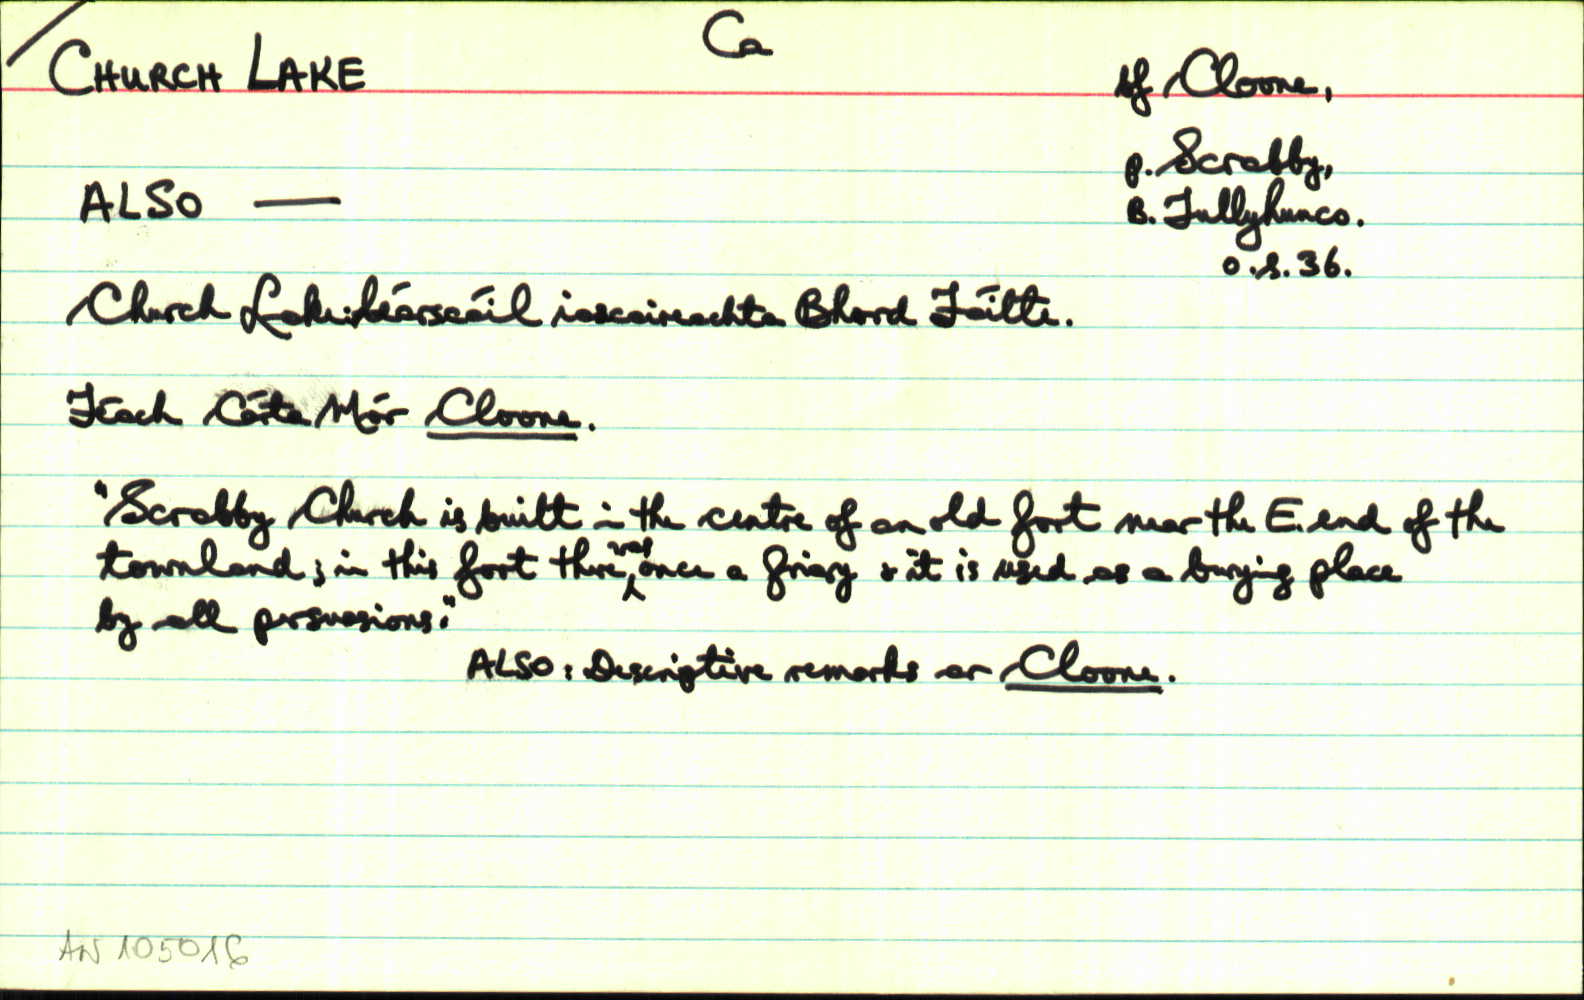 Ca
CHURCH LAKE
bf Cloone,
p. Scrabby,
B. Tullyhunco.
O.S. 36.
ALSO —
Church Lake: léarscáil iascaireachta Bhord Fáilte.
Féach Cárta Mór Cloone.
"Scrabby Church is built in the centre of an old fort near the E. end of the
townland; in this fort there was once a friary & it is used as a burying place
by all persuasions."
ALSO: Descriptive remarks ar Cloone.
AN 105016